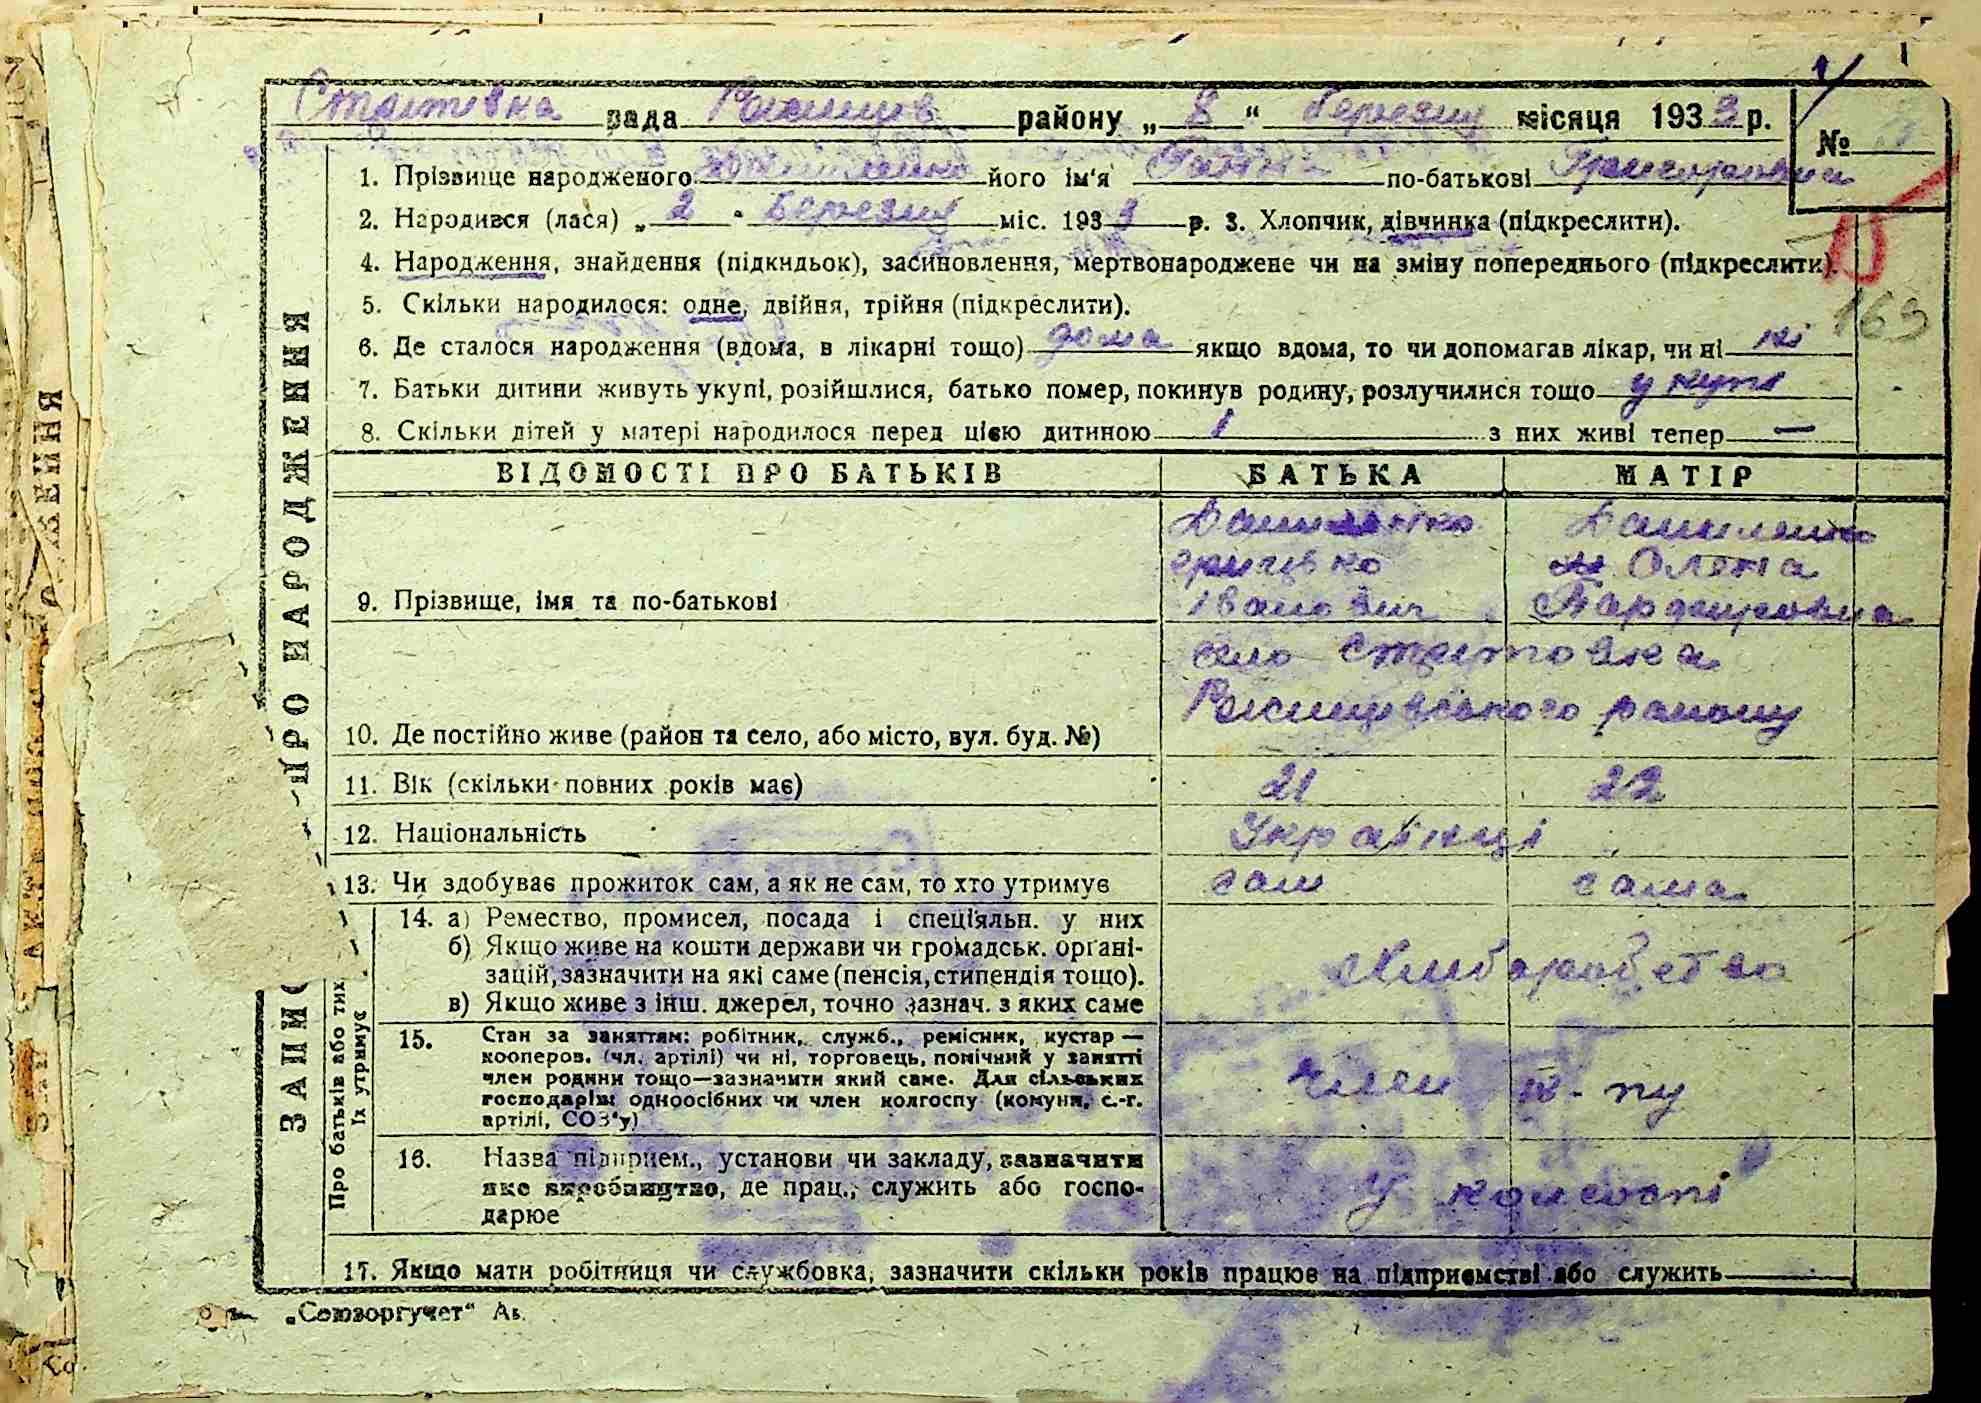 рада району „ 8 “ березня місяця 1933 р.
№
1. Прізвище народженого його ім'я Ганна по-батькові Григоровна
2. Народився (лася) „ 2 " березня міс. 1933 р. 3. Хлопчик, дівчинка (підкреслити).
4. Народження, знайдення (підкидьок), засиновлення, мертвонароджене чи на зміну попереднього (підкреслити).
15
163
5. Скільки народилося: одне, двійня, трійня (підкреслити).
6. Де сталося народження (вдома, в лікарні тощо) дома якщо вдома, то чи допомагав лікар, чи ні ні
7. Батьки дитини живуть укупі, розійшлися, батько помер, покинув родину, розлучилися тощо у купі
8. Скільки дітей у матері народилося перед цією дитиною 1 з них живі тепер —
ВІДОМОСТІ ПРО БАТЬКІВ БАТЬКА МАТІР
Даниленко Даниленко
Грицько Олена
9. Прізвище, імя та по-батькові Іванович
село
району
10. Де постійно живе (район та село, або місто, вул. буд. №)
11. Вік (скільки повних років має) 21 22
12. Національність Українці
13. Чи здобуває прожиток сам, а як не сам, то хто утримує сам сама
14. а) Ремество, промисел, посада і спеціяльн. у них
б) Якщо живе на кошти держави чи громадськ. органі-
зацій, зазначити на які саме (пенсія, стипендія тощо).
Хліборобство
в) Якщо живе з інш. джерел, точно зазнач. з яких саме
15. Стан за заняттям: робітник, служб., ремісник, кустар —
кооперов. (чл. артілі) чи ні, торговець, помічний у занятті
член родини тощо—зазначити який саме. Для сільських
член к-пу
господарів: одноосібних чи член колгоспу (комуни, с.-г.
артілі, СОЗ'у)
16. Назва підприєм., установи чи закладу, зазначити
яке виробництво, де прац., служить або госпо-
дарює
У колгоспі
17. Якщо мати робітниця чи службовка, зазначити скільки років працює на підприємстві або служить
„Союзоргучет“
ПРО НАРОДЖЕННЯ
Про батьків або тих,
їх утримує